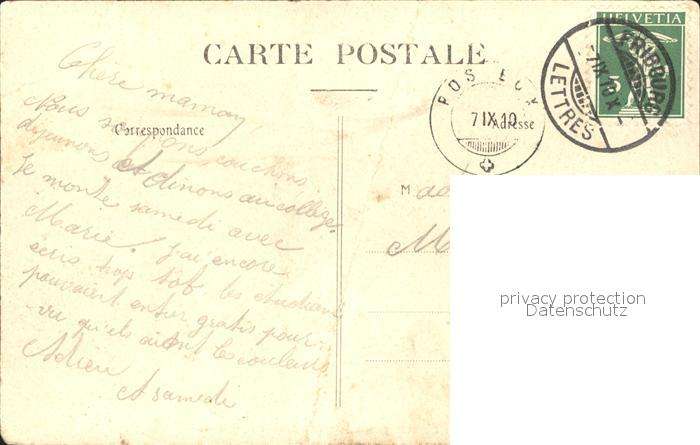 CARTE POSTALE
HELVETIA
5
FRIBOURG
LETTRES
7 IX 10
7 IX 10
Correspondance
Adresse
Chère maman
Nous couchons
déjeunons et dinons au collège.
Je monte samedi avec
Marie. J'ai encore
écris trop tôt les étudiants
pouvaient entrer gratis pour-
vu qu'ils aient les couleurs
Adieu
A samedi
M
privacy protection
Datenschutz